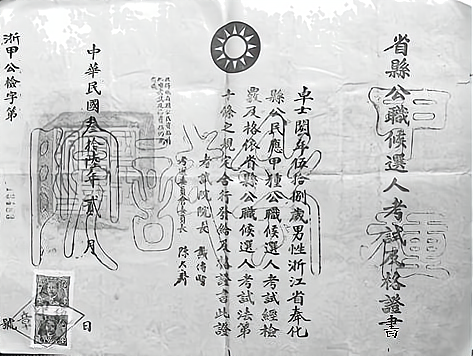 省縣公職候選人考試及格證書
卓士閎年伍拾捌歲男性浙江省奉化
縣公民應甲種公職候選人考試經檢
覈及格依省縣公職候選人考試法第
十條之規定合行發給及格證書此證
考試院院長 戴傳賢
考選委員會委員長 陳大齊
中華民國叁拾陸年貳月 日
浙甲公檢字第 號